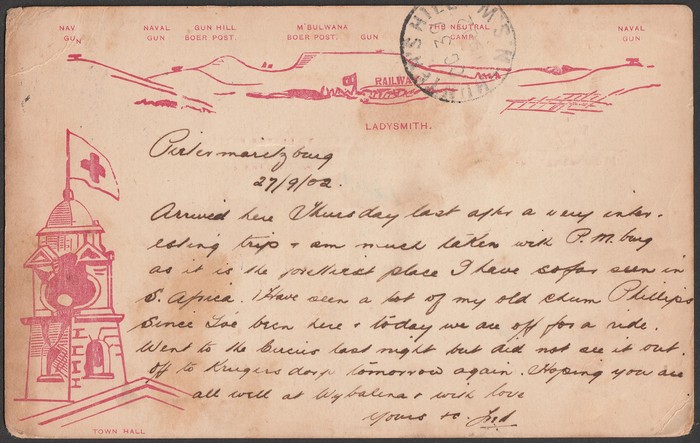 NAV GUN
NAVAL GUN
GUN HILL BOER POST.
M'BULWANA BOER POST.
GUN
THE NEUTRAL CAMP
NAVAL GUN
RAILWAY
LADYSMITH.
Pietermaritzburg
27/9/02.
Arrived here Thursday last after a very inter-
esting trip & am much taken with P.M.burg
as it is the prettiest place I have so far seen in
S. Africa. Have seen a lot of my old chum Phillips
since I've been here & today we are off for a ride.
Went to the Circus last night but did not see it out.
off to Krugersdorp tomorrow again. Hoping you are
all well at Wybalena & with love
Yours
TOWN HALL